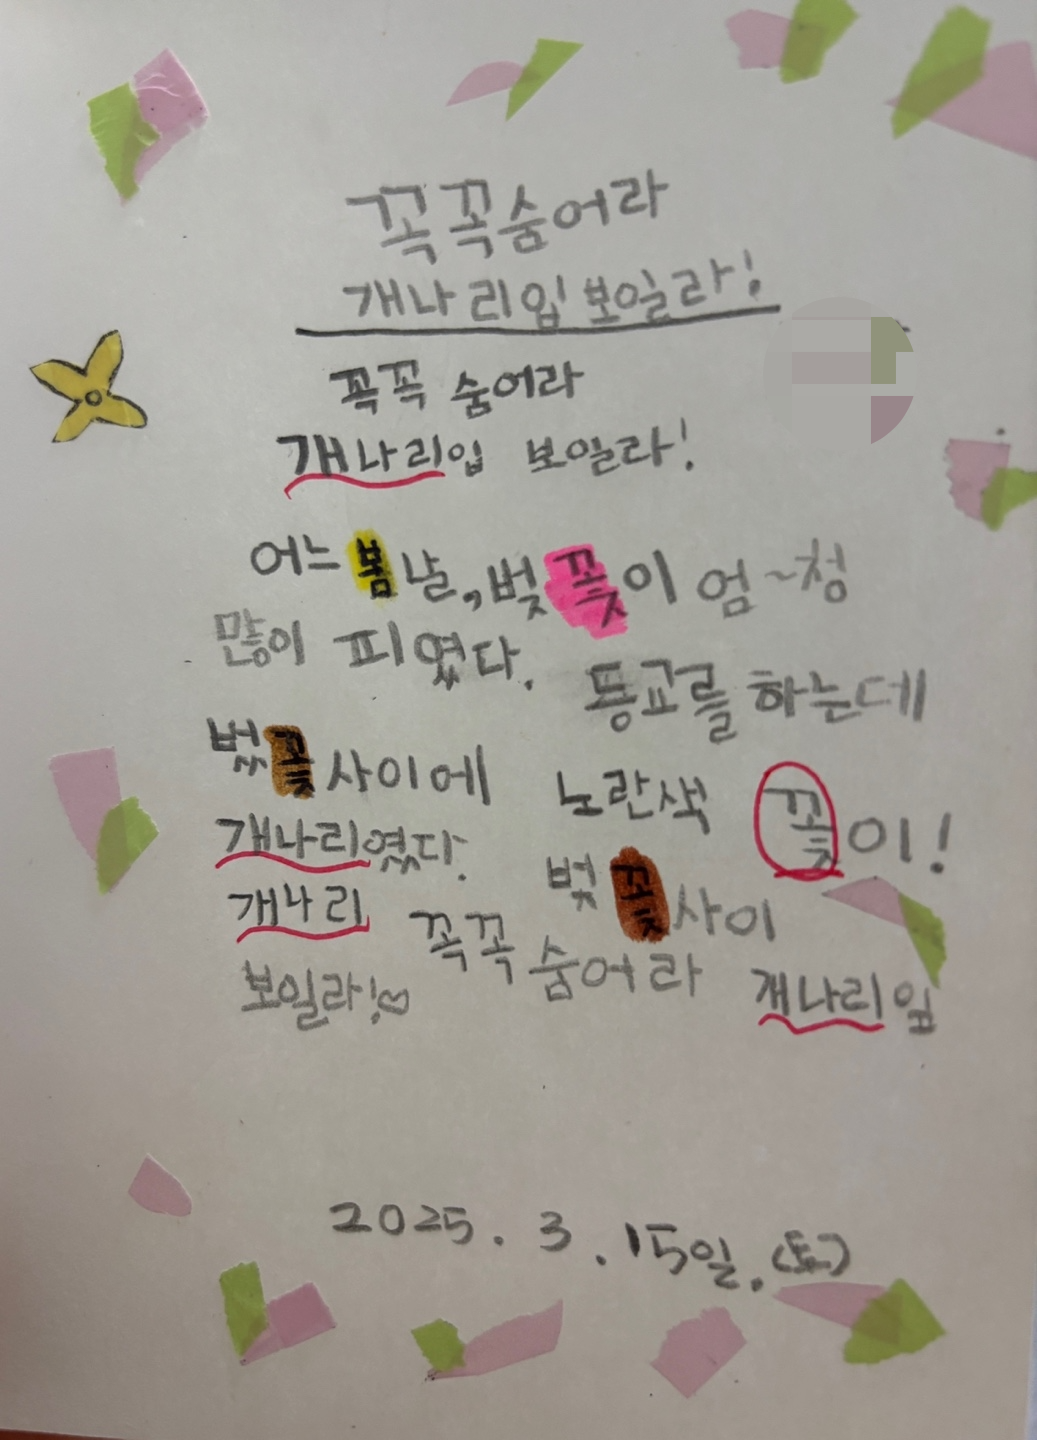 꼭꼭숨어라
개나리입보일라!
꼭꼭 숨어라
개나리입 보일라!
어느 봄날, 벚꽃이 엄~청
많이 피였다.
등교를 하는데
벚꽃사이에
노란색 꽃이!
개나리였다.
벚꽃사이
개나리 꼭꼭 숨어라 개나리잎
보일라!♡
2025. 3. 15일. (토)